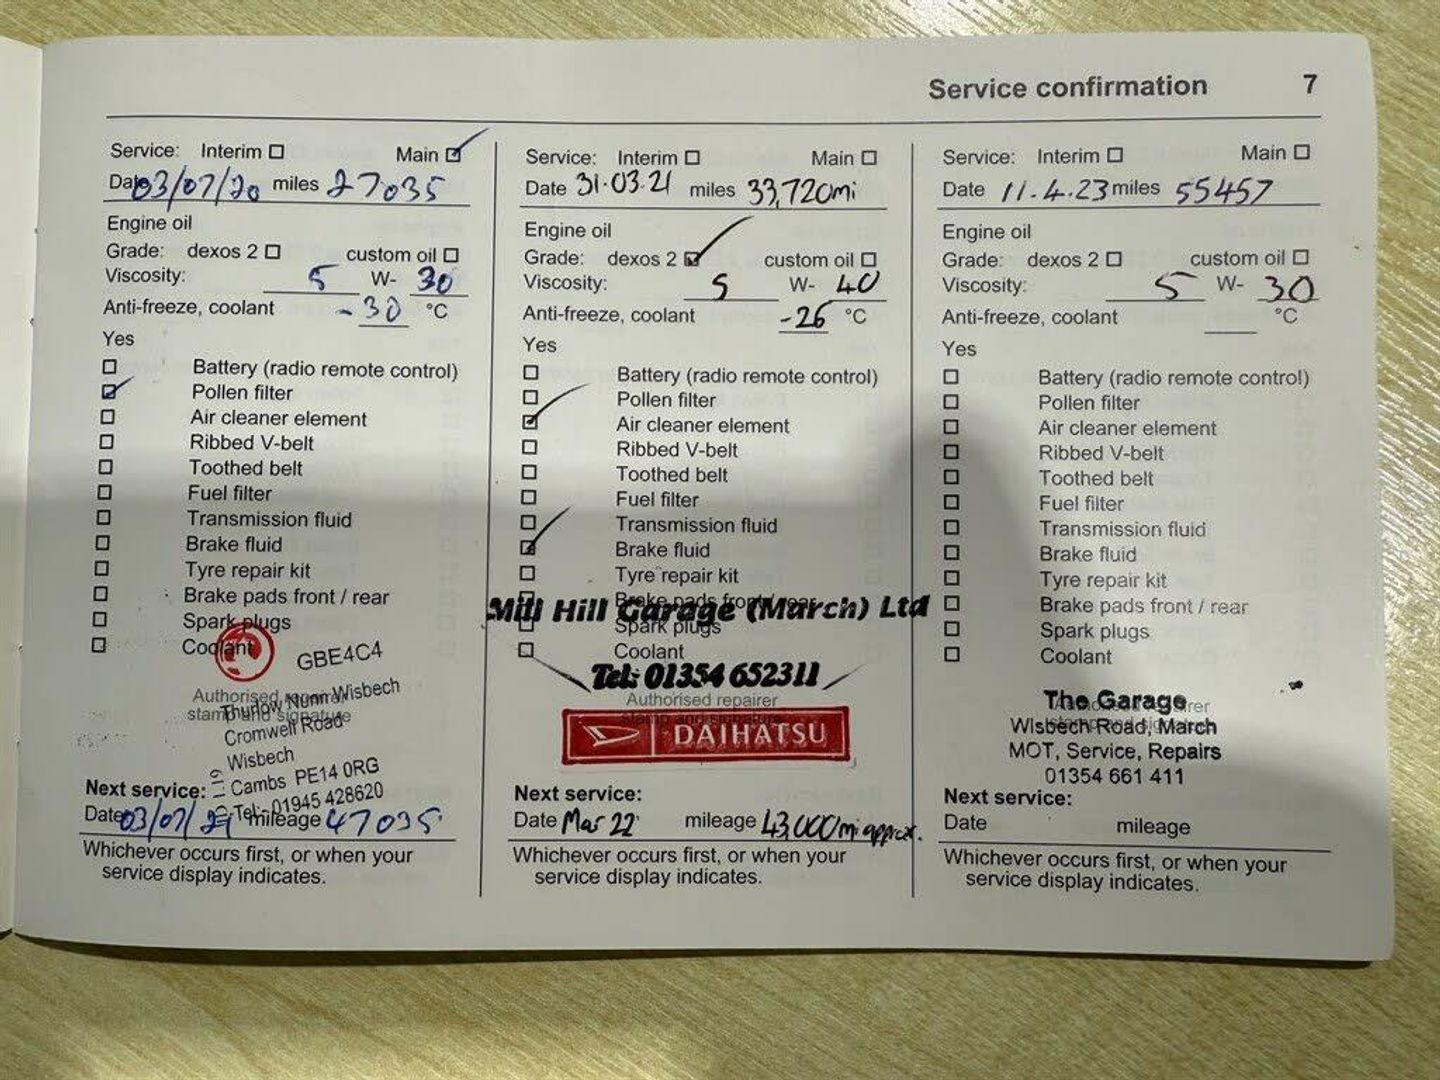 Service confirmation 7
Service: Interim Main
Date 03/07/20 miles 27035
Engine oil
Grade: dexos 2 custom oil
Viscosity: 5 W- 30
Anti-freeze, coolant -30 °C
Yes
Battery (radio remote control)
Pollen filter
Air cleaner element
Ribbed V-belt
Toothed belt
Fuel filter
Transmission fluid
Brake fluid
Tyre repair kit
Brake pads front / rear
Spark plugs
Coolant
GBE4C4
Authorised repairer
stamp and signature
Thurlow Nunn Wisbech
Cromwell Road
Wisbech
Cambs PE14 0RG
Tel:- 01945 428620
Next service:
Date 03/07/21 mileage 47035
Whichever occurs first, or when your
service display indicates.
Service: Interim Main
Date 31.03.21 miles 33,720mi
Engine oil
Grade: dexos 2 custom oil
Viscosity: 5 W- 40
Anti-freeze, coolant -26 °C
Yes
Battery (radio remote control)
Pollen filter
Air cleaner element
Ribbed V-belt
Toothed belt
Fuel filter
Transmission fluid
Brake fluid
Tyre repair kit
Brake pads front / rear
Mill Hill Garage (March) Ltd
Spark plugs
Coolant
Tel: 01354 652311
Authorised repairer
stamp and signature
DAIHATSU
Next service:
Date Mar 22 mileage 43,000mi approx.
Whichever occurs first, or when your
service display indicates.
Service: Interim Main
Date 11.4.23 miles 55457
Engine oil
Grade: dexos 2 custom oil
Viscosity: 5 W- 30
Anti-freeze, coolant °C
Yes
Battery (radio remote control)
Pollen filter
Air cleaner element
Ribbed V-belt
Toothed belt
Fuel filter
Transmission fluid
Brake fluid
Tyre repair kit
Brake pads front / rear
Spark plugs
Coolant
The Garage
Authorised repairer
Wisbech Road, March
stamp and signature
MOT, Service, Repairs
01354 661 411
Next service:
Date mileage
Whichever occurs first, or when your
service display indicates.